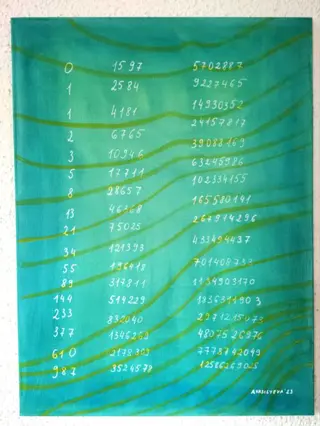 0 1597 5702887
1 2584 9227465
1 4181 14930352
2 6765 24157817
3 10946 39088169
5 17711 63245986
8 28657 102334155
13 46368 165580141
21 75025 267914296
34 121393 433494437
55 196418 701408733
89 317811 1134903170
144 514229 1836311903
233 832040 2971215073
377 1346269 4807526976
610 2178309 7778742049
987 3524578 12586269025